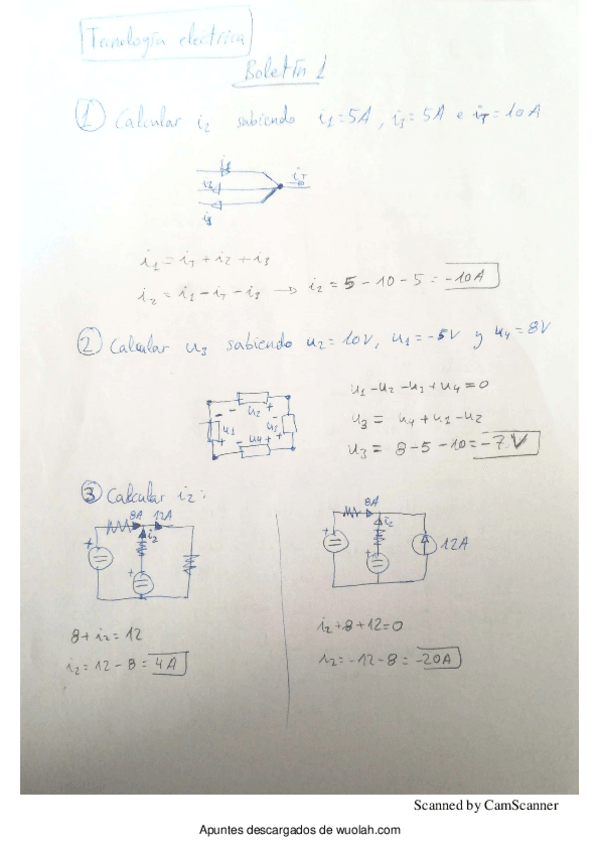 Tecnología eléctrica
Boletín 1
① Calcular i2 sabiendo i1=5A, i3=5A e iT=10A
i1
i2
iT
i3
i1 = iT + i2 + i3
i2 = i1 - iT - i3 → i2 = 5 - 10 - 5 = -10A
② Calcular u3 sabiendo u2=10V, u1=-5V y u4=8V
- u2 +
- u1 +
- u3 +
- u4 +
u1 - u2 - u3 + u4 = 0
u3 = u4 + u1 - u2
u3 = 8 - 5 - 10 = -7V
③ Calcular i2:
8A 12A
i2
+
+
8 + i2 = 12
i2 = 12 - 8 = 4A
8A
i2
+
+
12A
i2 + 8 + 12 = 0
i2 = -12 - 8 = -20A
Scanned by CamScanner
Apuntes descargados de wuolah.com